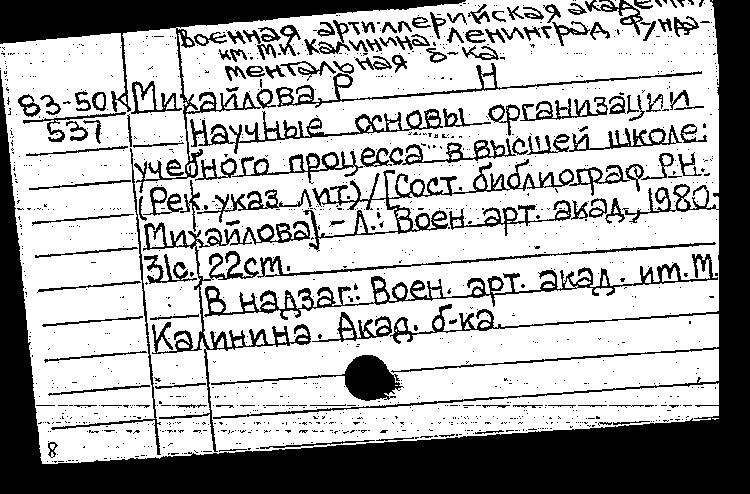 Военная артиллерийская академия
им. М.И. Калинина. Ленинград. Фунда-
ментальная б-ка.
83-50К Михайлова, Р Н
537 Научные основы организации
учебного процесса в высшей школе:
(Рек. указ. лит.) / [Сост. библиограф Р.Н.
Михайлова]. - Л.: Воен. арт. акад., 1980.-
31с. 22см.
В надзаг.: Воен. арт. акад. им. М.
Калинина. Акад. б-ка.
8